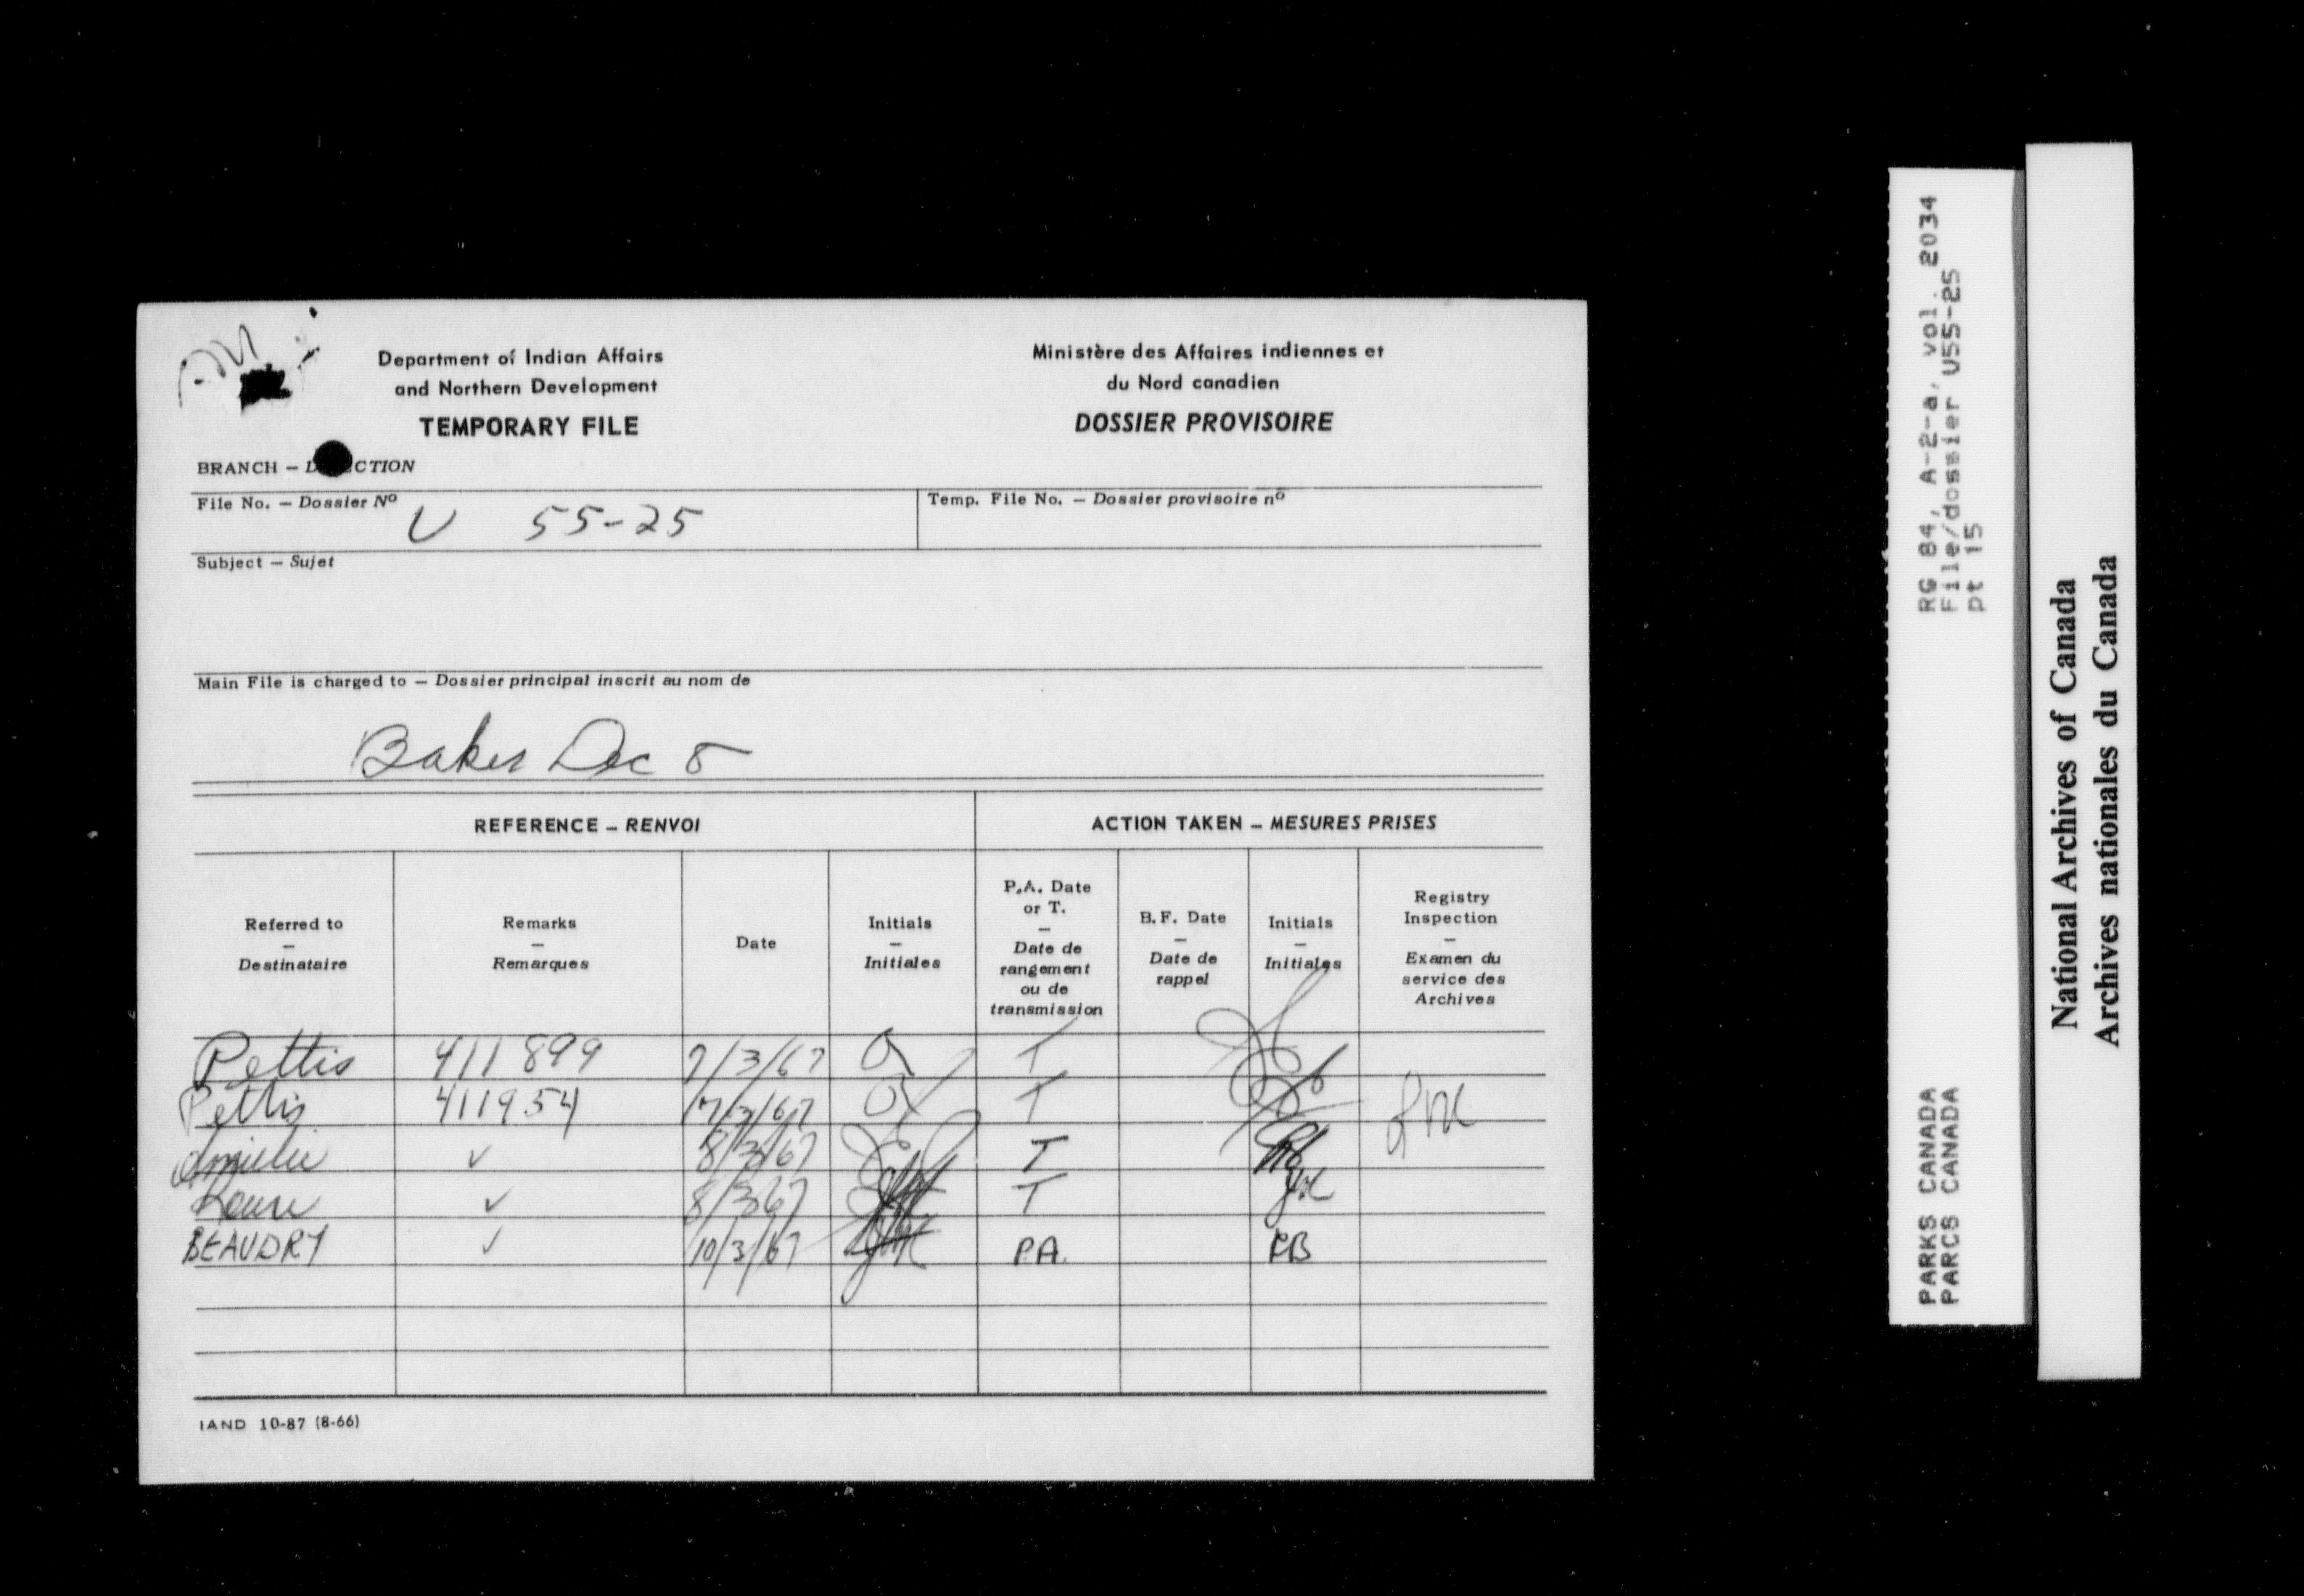 Department of Indian Affairs
and Northern Development
TEMPORARY FILE
Ministère des Affaires indiennes et
du Nord canadien
DOSSIER PROVISOIRE
BRANCH – D CTION
File No. – Dossier Nº U 55-25
Temp. File No. – Dossier provisoire nº
Subject – Sujet
Main File is charged to – Dossier principal inscrit au nom de
Baker Dec 8
REFERENCE – RENVOI
ACTION TAKEN – MESURES PRISES
Referred to – Destinataire
Remarks – Remarques
Date
Initials – Initiales
P.A. Date or T. – Date de rangement ou de transmission
B.F. Date – Date de rappel
Initials – Initiales
Registry Inspection – Examen du service des Archives
Pettis 411899 7/3/67 T
Pettis 411954 7/3/67 T
✓ 8/3/67 T
✓ 8/3/67 T
BEAUDRY ✓ 10/3/67 P.A.
IAND 10-87 (8-66)
RG 84, A-2-a, vol. 2034
File/dossier U55-25
pt 15
PARKS CANADA
PARCS CANADA
National Archives of Canada
Archives nationales du Canada